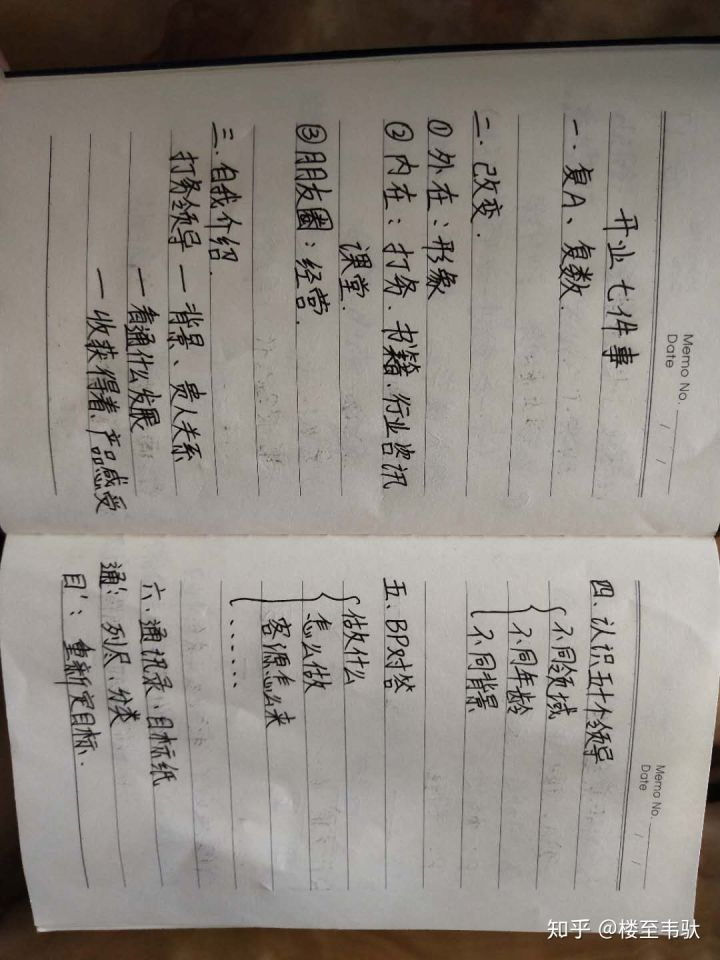 Memo No.
Date / /
开业七件事
一.复A、复数
二.改变.
①外在:形象
②内在:打务、书籍、行业咨讯
课堂.
③朋友圈:经营.
三.自我介绍.
打务领导—背景、贵人关系
—看通什么发展
—收获得着、产品感受
Memo No.
Date / /
四、认识五十个领导
不同领域
不同年龄
不同背景
五、BP对答
做什么
怎么做
客源怎么来
......
六、通讯录、目标纸
通:列尽、分类
目:重新定目标、
知乎 @楼至韦驮